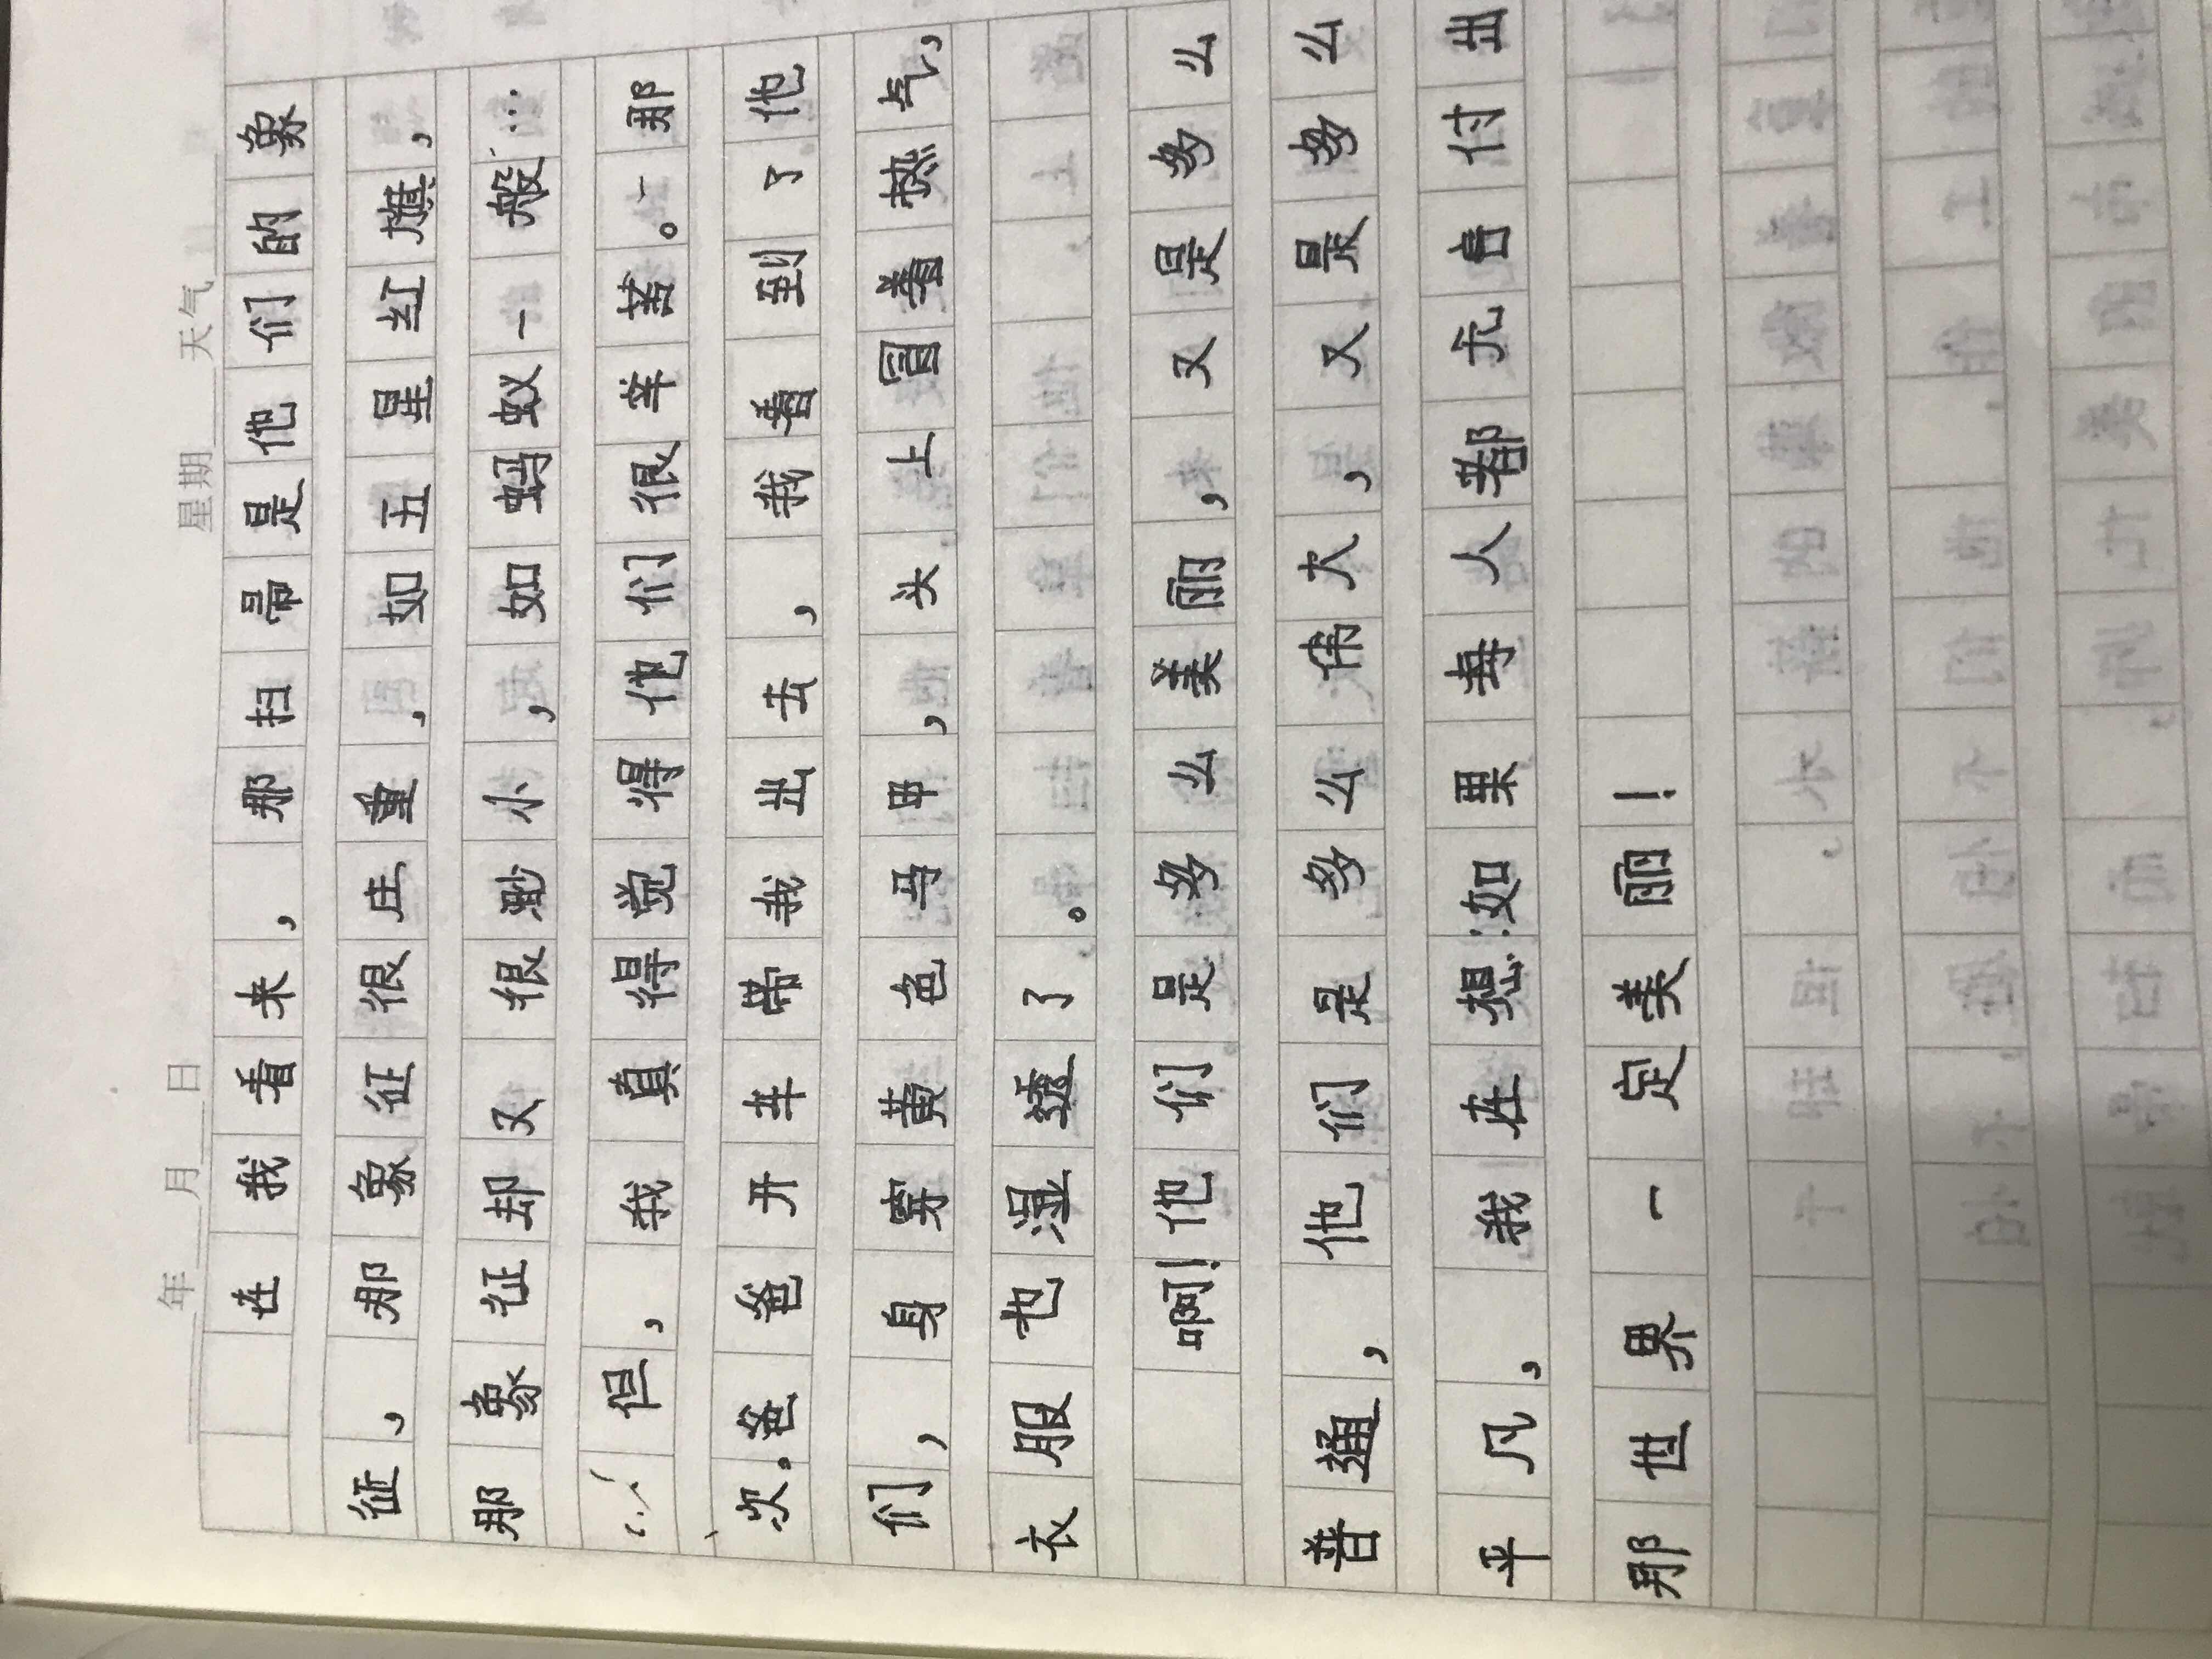 年 月 日 星期 天气
在我看来，那扫帚是他们的象
征，那象征很庄重，如五星红旗，
那象征却又很渺小，如蚂蚁一般…
…但，我真得觉得他们很辛苦。一那
次。爸爸开车带我出去，我看到了他
们，身穿黄色马甲，头上冒着热气，
衣服也湿透了。
啊！他们是多么美丽，又是多么
普通，他们是多么伟大，又是多么
平凡，我在想：如果每人都无言付出
那世界一定美丽！